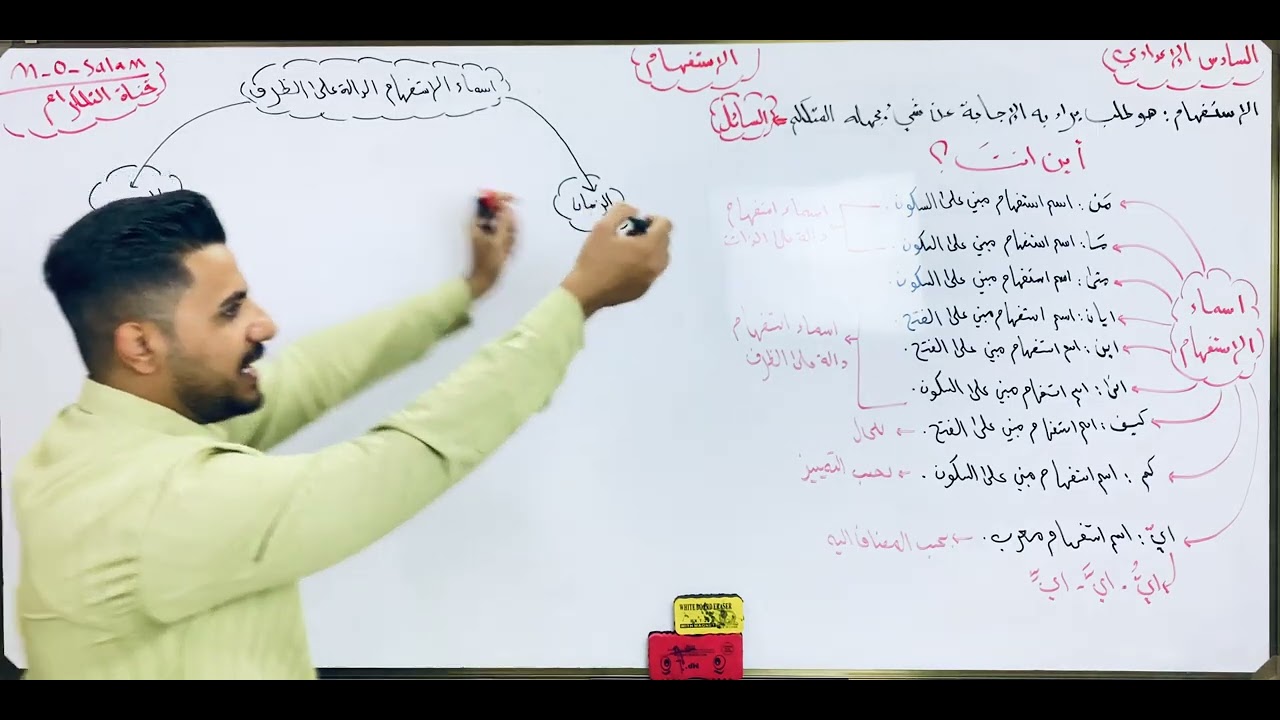 السادس الإعدادي
الاستفهام
M-O-Salam
قناة التلكرام
الاستفهام : هو طلب يراد به الإجابة عن شيء يجهله المتكلم ← السائل
أين انتَ ؟
اسماء الاستفهام
مَن : اسم استفهام مبني على السكون .
مَا : اسم استفهام مبني على السكون .
اسماء استفهام
دالة على الذات
متى : اسم استفهام مبني على السكون .
ايان : اسم استفهام مبني على الفتح .
اين : اسم استفهام مبني على الفتح .
انى : اسم استفهام مبني على السكون .
اسماء استفهام
دالة على الظرف
كيف : اسم استفهام مبني على الفتح . ← للحال
كم : اسم استفهام مبني على السكون . ← بحسب التمييز
ايّ : اسم استفهام معرب . ← بحسب المضاف اليه
ايُّ - ايَّ - ايِّ
اسماء الاستفهام الدالة على الظرف
الزمان
WHITE BOARD ERASER